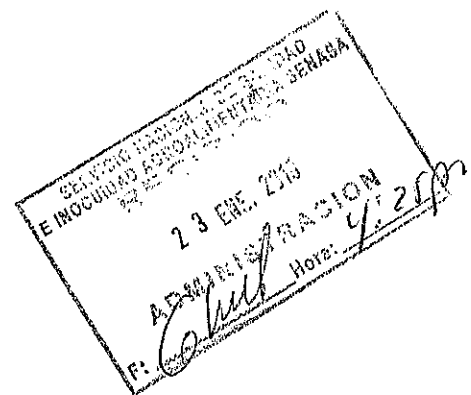 SERVICIO NACIONAL DE SANIDAD
E INOCUIDAD AGROALIMENTARIA SENASA
23 ENE. 2013
ADMINISTRACION
F: Hora: 4:25pm